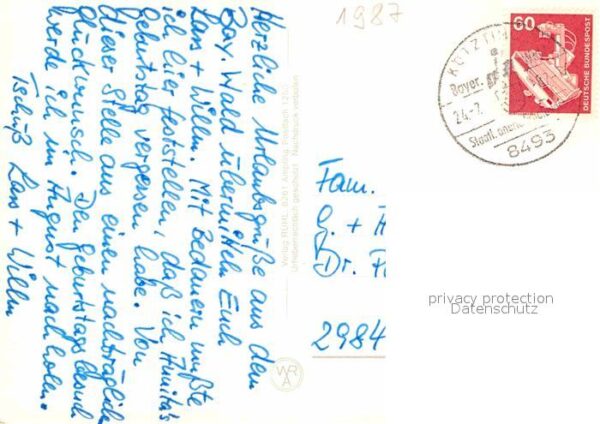 1987
Herzliche Urlaubsgrüße aus dem
Bay. Wald übermitteln Euch
Lars + Willm. Mit Bedauern mußte
ich hier feststellen, daß ich Anita's
Geburtstag vergessen habe. Von
dieser Stelle aus einen nachträglichen
Glückwunsch. Den Geburtstagsbesuch
werde ich im August nachholen.
Tschüß Lars + Willm
Verlag REHL, 8261 Ampfing, Postfach 1263
Urheberrechtlich geschützt · Nachdruck verboten
WRA
Fam.
G. +
Dr.
2984
KÖTZTING
Bayer.
24.-7.
Staatl. anerk.
8493
60
DEUTSCHE BUNDESPOST
privacy protection
Datenschutz